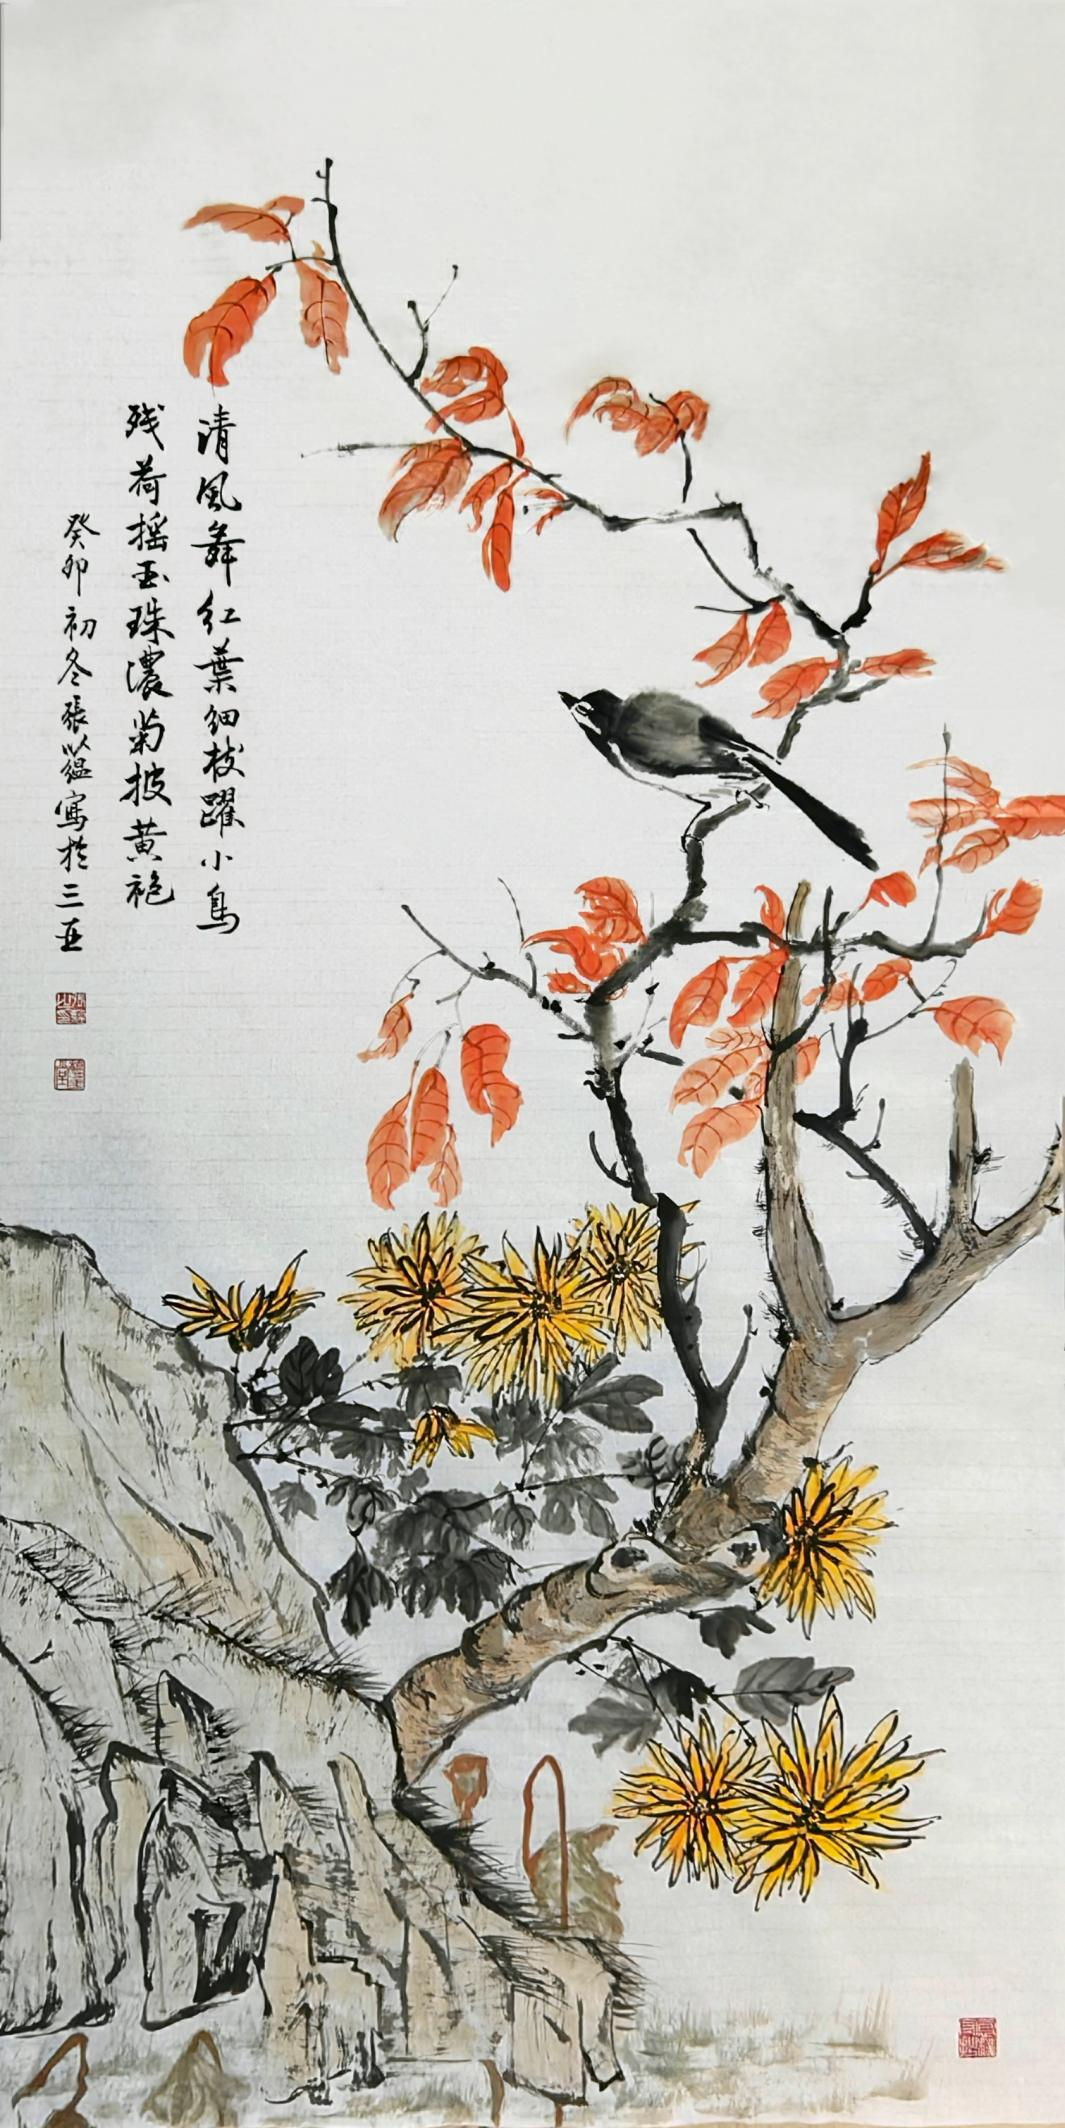 清風舞紅葉細枝躍小鳥
残荷摇玉珠濃菊披黄袍
癸卯初冬張蘊寫於三亚